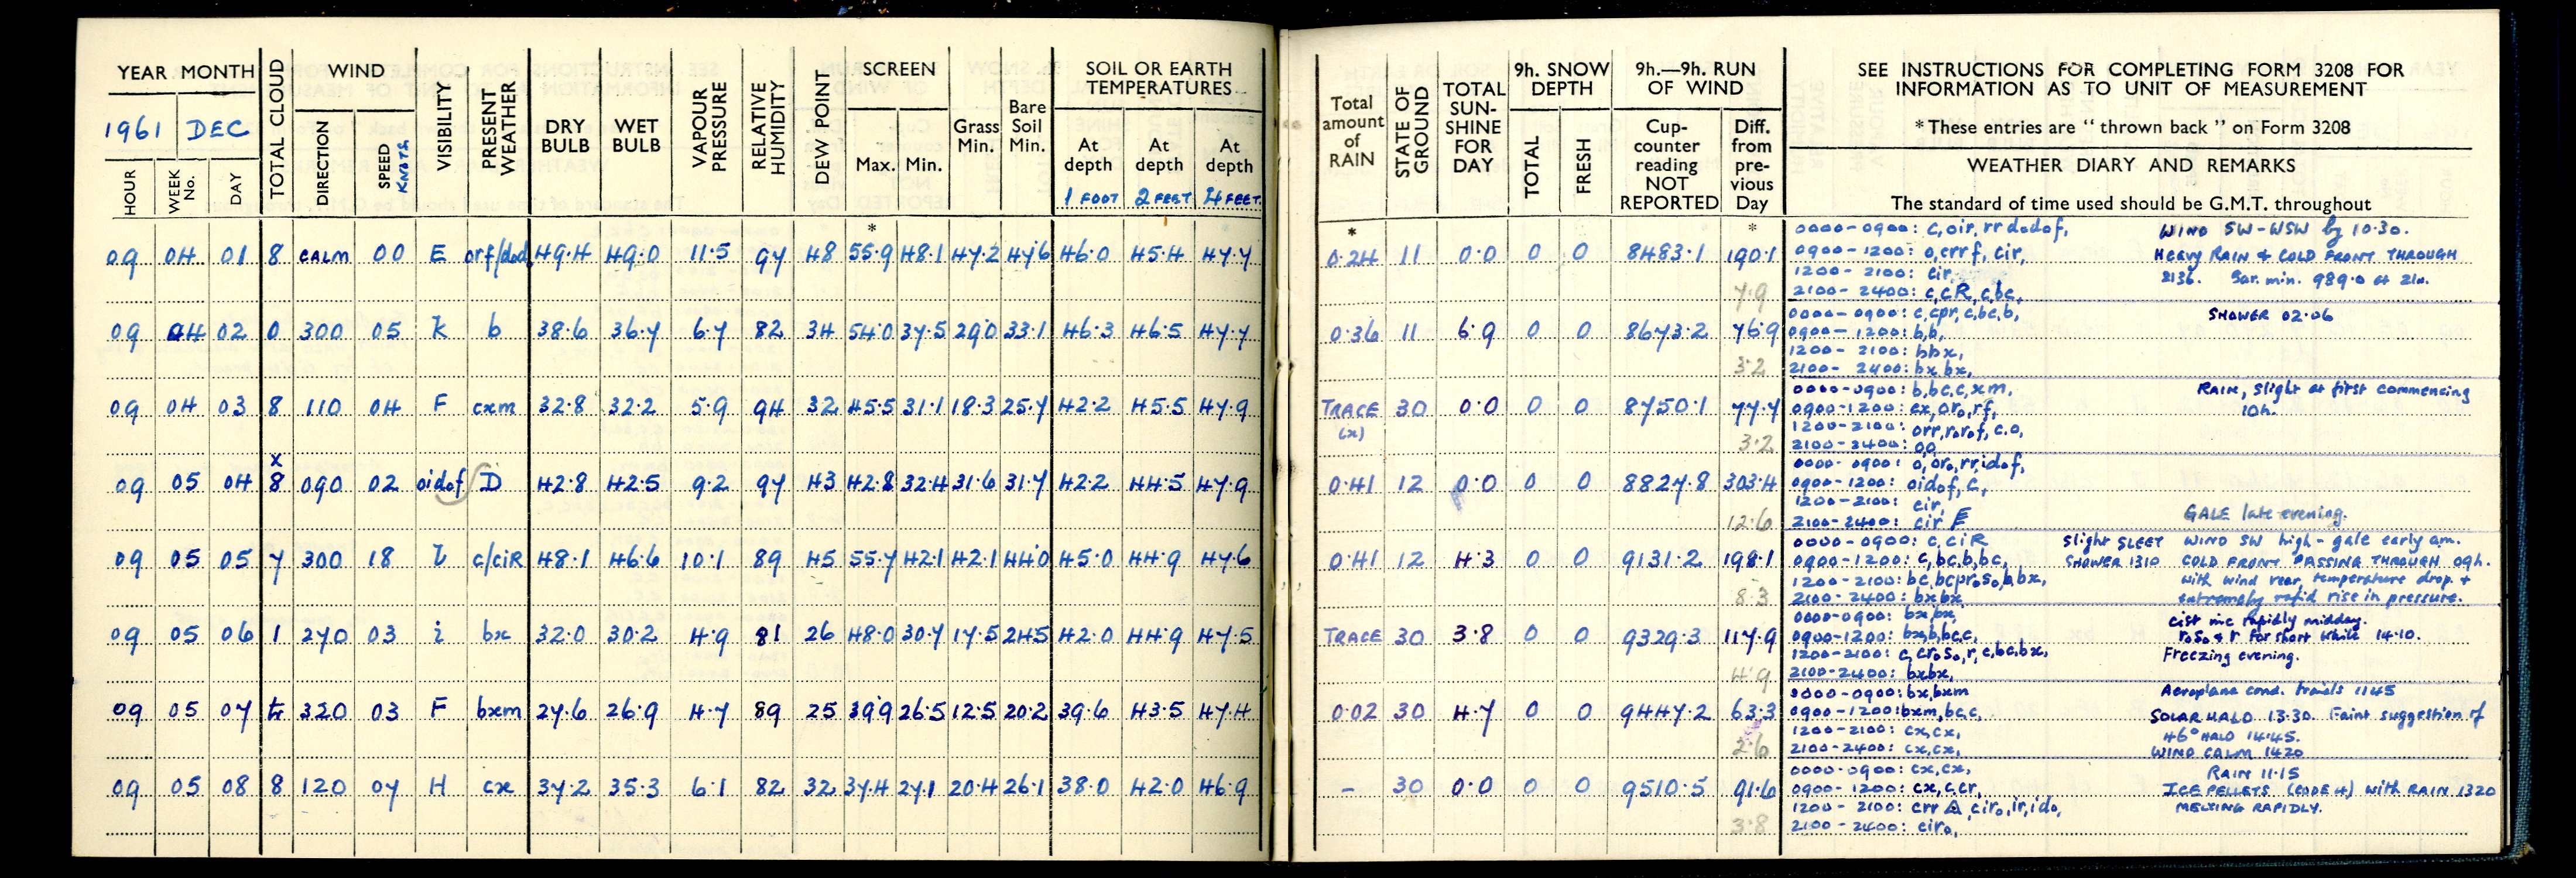 YEAR MONTH
1961 DEC
HOUR WEEK No. DAY TOTAL CLOUD
WIND
DIRECTION SPEED KNOTS
VISIBILITY PRESENT WEATHER
DRY BULB WET BULB
VAPOUR PRESSURE RELATIVE HUMIDITY DEW POINT
SCREEN
Max. Min. Grass Min. Bare Soil Min.
SOIL OR EARTH TEMPERATURES
At depth 1 FOOT At depth 2 FEET At depth 4 FEET
Total amount of RAIN
STATE OF GROUND
TOTAL SUN-SHINE FOR DAY
9h. SNOW DEPTH
TOTAL FRESH
9h.—9h. RUN OF WIND
Cup-counter reading NOT REPORTED
Diff. from pre-vious Day
SEE INSTRUCTIONS FOR COMPLETING FORM 3208 FOR
INFORMATION AS TO UNIT OF MEASUREMENT
* These entries are " thrown back " on Form 3208
WEATHER DIARY AND REMARKS
The standard of time used should be G.M.T. throughout
* * *
09 04 01 8 CALM 00 E orf/dod 49.4 49.0 11.5 97 48 55.9 48.1 47.2 47.6 46.0 45.4 47.7 0.24 11 0.0 0 0 8483.1 190.1
7.9
0000-0900: c, oir, rr dodof,
0900-1200: o, errf, cir,
1200-2100: cir,
2100-2400: c, cR, c, bc,
WIND SW-WSW by 10.30.
HEAVY RAIN & COLD FRONT THROUGH
2136. Bar. min. 989.0 at 21h.
09 04 02 0 300 05 k b 38.6 36.7 6.7 82 34 54.0 37.5 29.0 33.1 46.3 46.5 47.7 0.36 11 6.9 0 0 8673.2 76.9
3.2
0000-0900: c, cpr, c, bc, b,
0900-1200: b, b,
1200-2100: bbx,
2100-2400: bx bx,
SHOWER 02.06
09 04 03 8 110 04 F cxm 32.8 32.2 5.9 94 32 45.5 31.1 18.3 25.7 42.2 45.5 47.9 TRACE (x) 30 0.0 0 0 8750.1 77.7
3.2
0000-0900: b, bc, c, xm,
0900-1200: cx, oro, rf,
1200-2100: orr, rorof, c, o,
2100-2400: oo
RAIN, slight at first commencing
10h.
x
09 05 04 8 090 02 oidof D 42.8 42.5 9.2 97 43 42.8 32.4 31.6 31.7 42.2 44.5 47.9 0.41 12 0.0 0 0 8827.8 303.4
12.6
0000-0900: o, oro, rr, idof,
0900-1200: oidof, c,
1200-2100: cir,
2100-2400: cir F
GALE late evening.
09 05 05 7 300 18 c/ciR 48.1 46.6 10.1 89 45 55.7 42.1 42.1 44.0 45.0 44.9 47.6 0.41 12 4.3 0 0 9131.2 198.1
8.3
0000-0900: c, ciR
0900-1200: c, bc, b, bc,
1200-2100: bc, bcpr, so, b, bx,
2100-2400: bx bx
Slight SLEET
SHOWER 1310
WIND SW high - gale early am.
COLD FRONT PASSING THROUGH 09h.
with wind veer, temperature drop. +
extremely rapid rise in pressure.
09 05 06 1 270 03 i bx 32.0 30.2 4.9 81 26 48.0 30.7 17.5 24.5 42.0 44.9 47.5 TRACE 30 3.8 0 0 9329.3 117.9
4.9
0000-0900: bx bx,
0900-1200: bx, b, bc, c,
1200-2100: c, croso, r, c, bc, bx,
2100-2400: bx bx,
cist inc rapidly midday.
roso & r for short while 14.10.
Freezing evening.
09 05 07 tr 320 03 F bxm 27.6 26.9 4.7 89 25 39.9 26.5 12.5 20.2 39.6 43.5 47.4 0.02 30 4.7 0 0 9447.2 63.3
2.6
0000-0900: bx, bxm
0900-1200: bxm, bc, c,
1200-2100: cx, cx,
2100-2400: cx, cx,
Aeroplane cond. trails 1145
SOLAR HALO 13.30. Faint suggestion of
46° HALO 14.45.
WIND CALM 1420
09 05 08 8 120 07 H cx 37.2 35.3 6.1 82 32 37.4 27.1 20.4 26.1 38.0 42.0 46.9 - 30 0.0 0 0 9510.5 91.6
3.8
0000-0900: cx, cx,
0900-1200: cx, c, cr,
1200-2100: crr, ciro, ir, ido,
2100-2400: ciro,
RAIN 11.15
ICE PELLETS (CODE 4) with RAIN 1320
MELTING RAPIDLY.